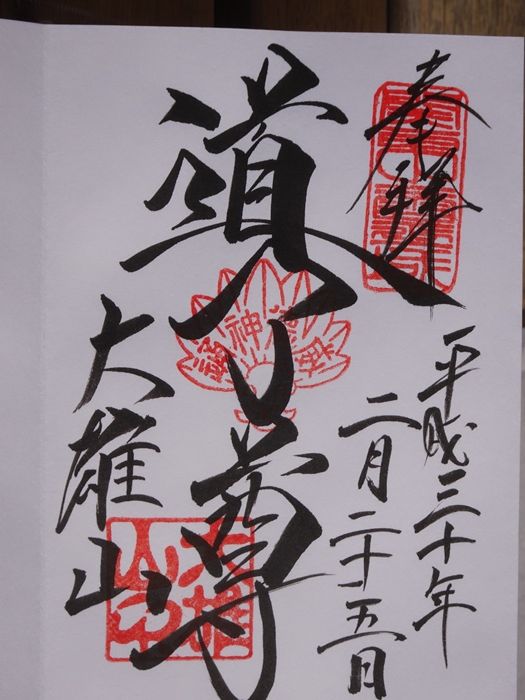 奉拝
平成三十年
二月二十五日
道了尊
大雄山
大雄山印